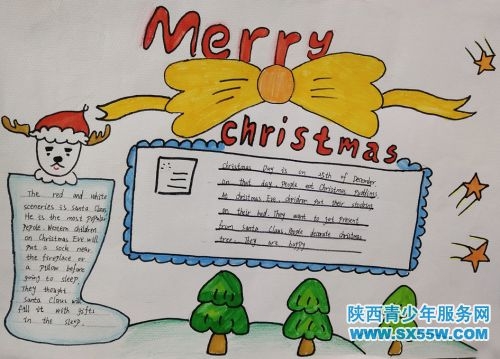 Merry
christmas
Christmas Day is on 25th of December
on that day. People eat Christmas Puddings
On Christmas Eve. children put their stocking
on their bed. They want to get present
from santa Claus. People decorate christmas
tree. They are happy
The red and white
sceneries is santa Claus.
He is the most popular
Pepole. Western children
on Christmas Eve will
put a sock near
the fireplace or
a pillow before
going to sleep.
They thought
santa Claus will
fill it with gifts
in the sleep.
陕西青少年服务网
www.sx55w.com